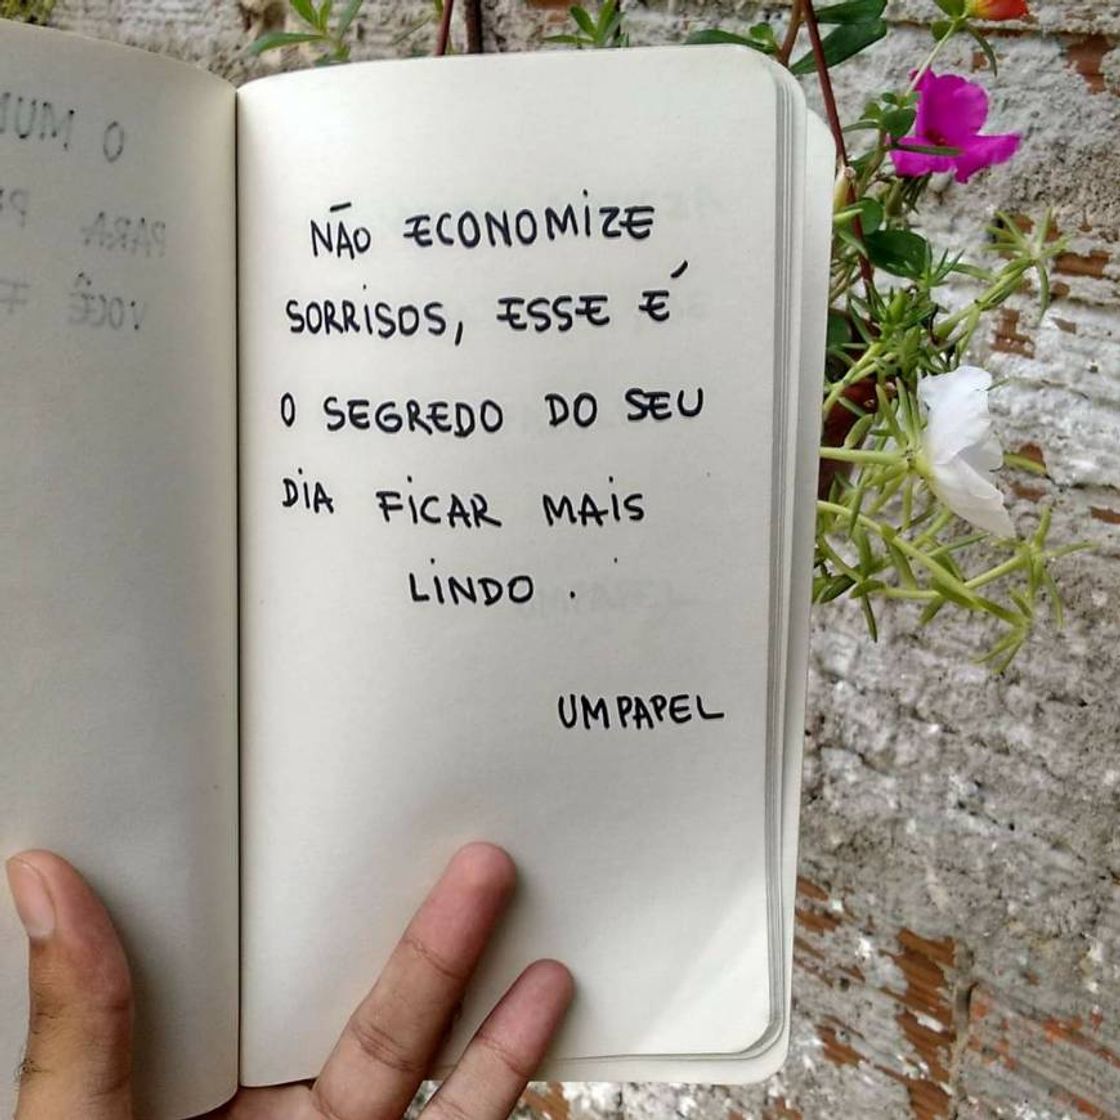 O
PARA
VOCÊ
NÃO ECONOMIZE
SORRISOS, ESSE É
O SEGREDO DO SEU
DIA FICAR MAIS
LINDO .
UMPAPEL